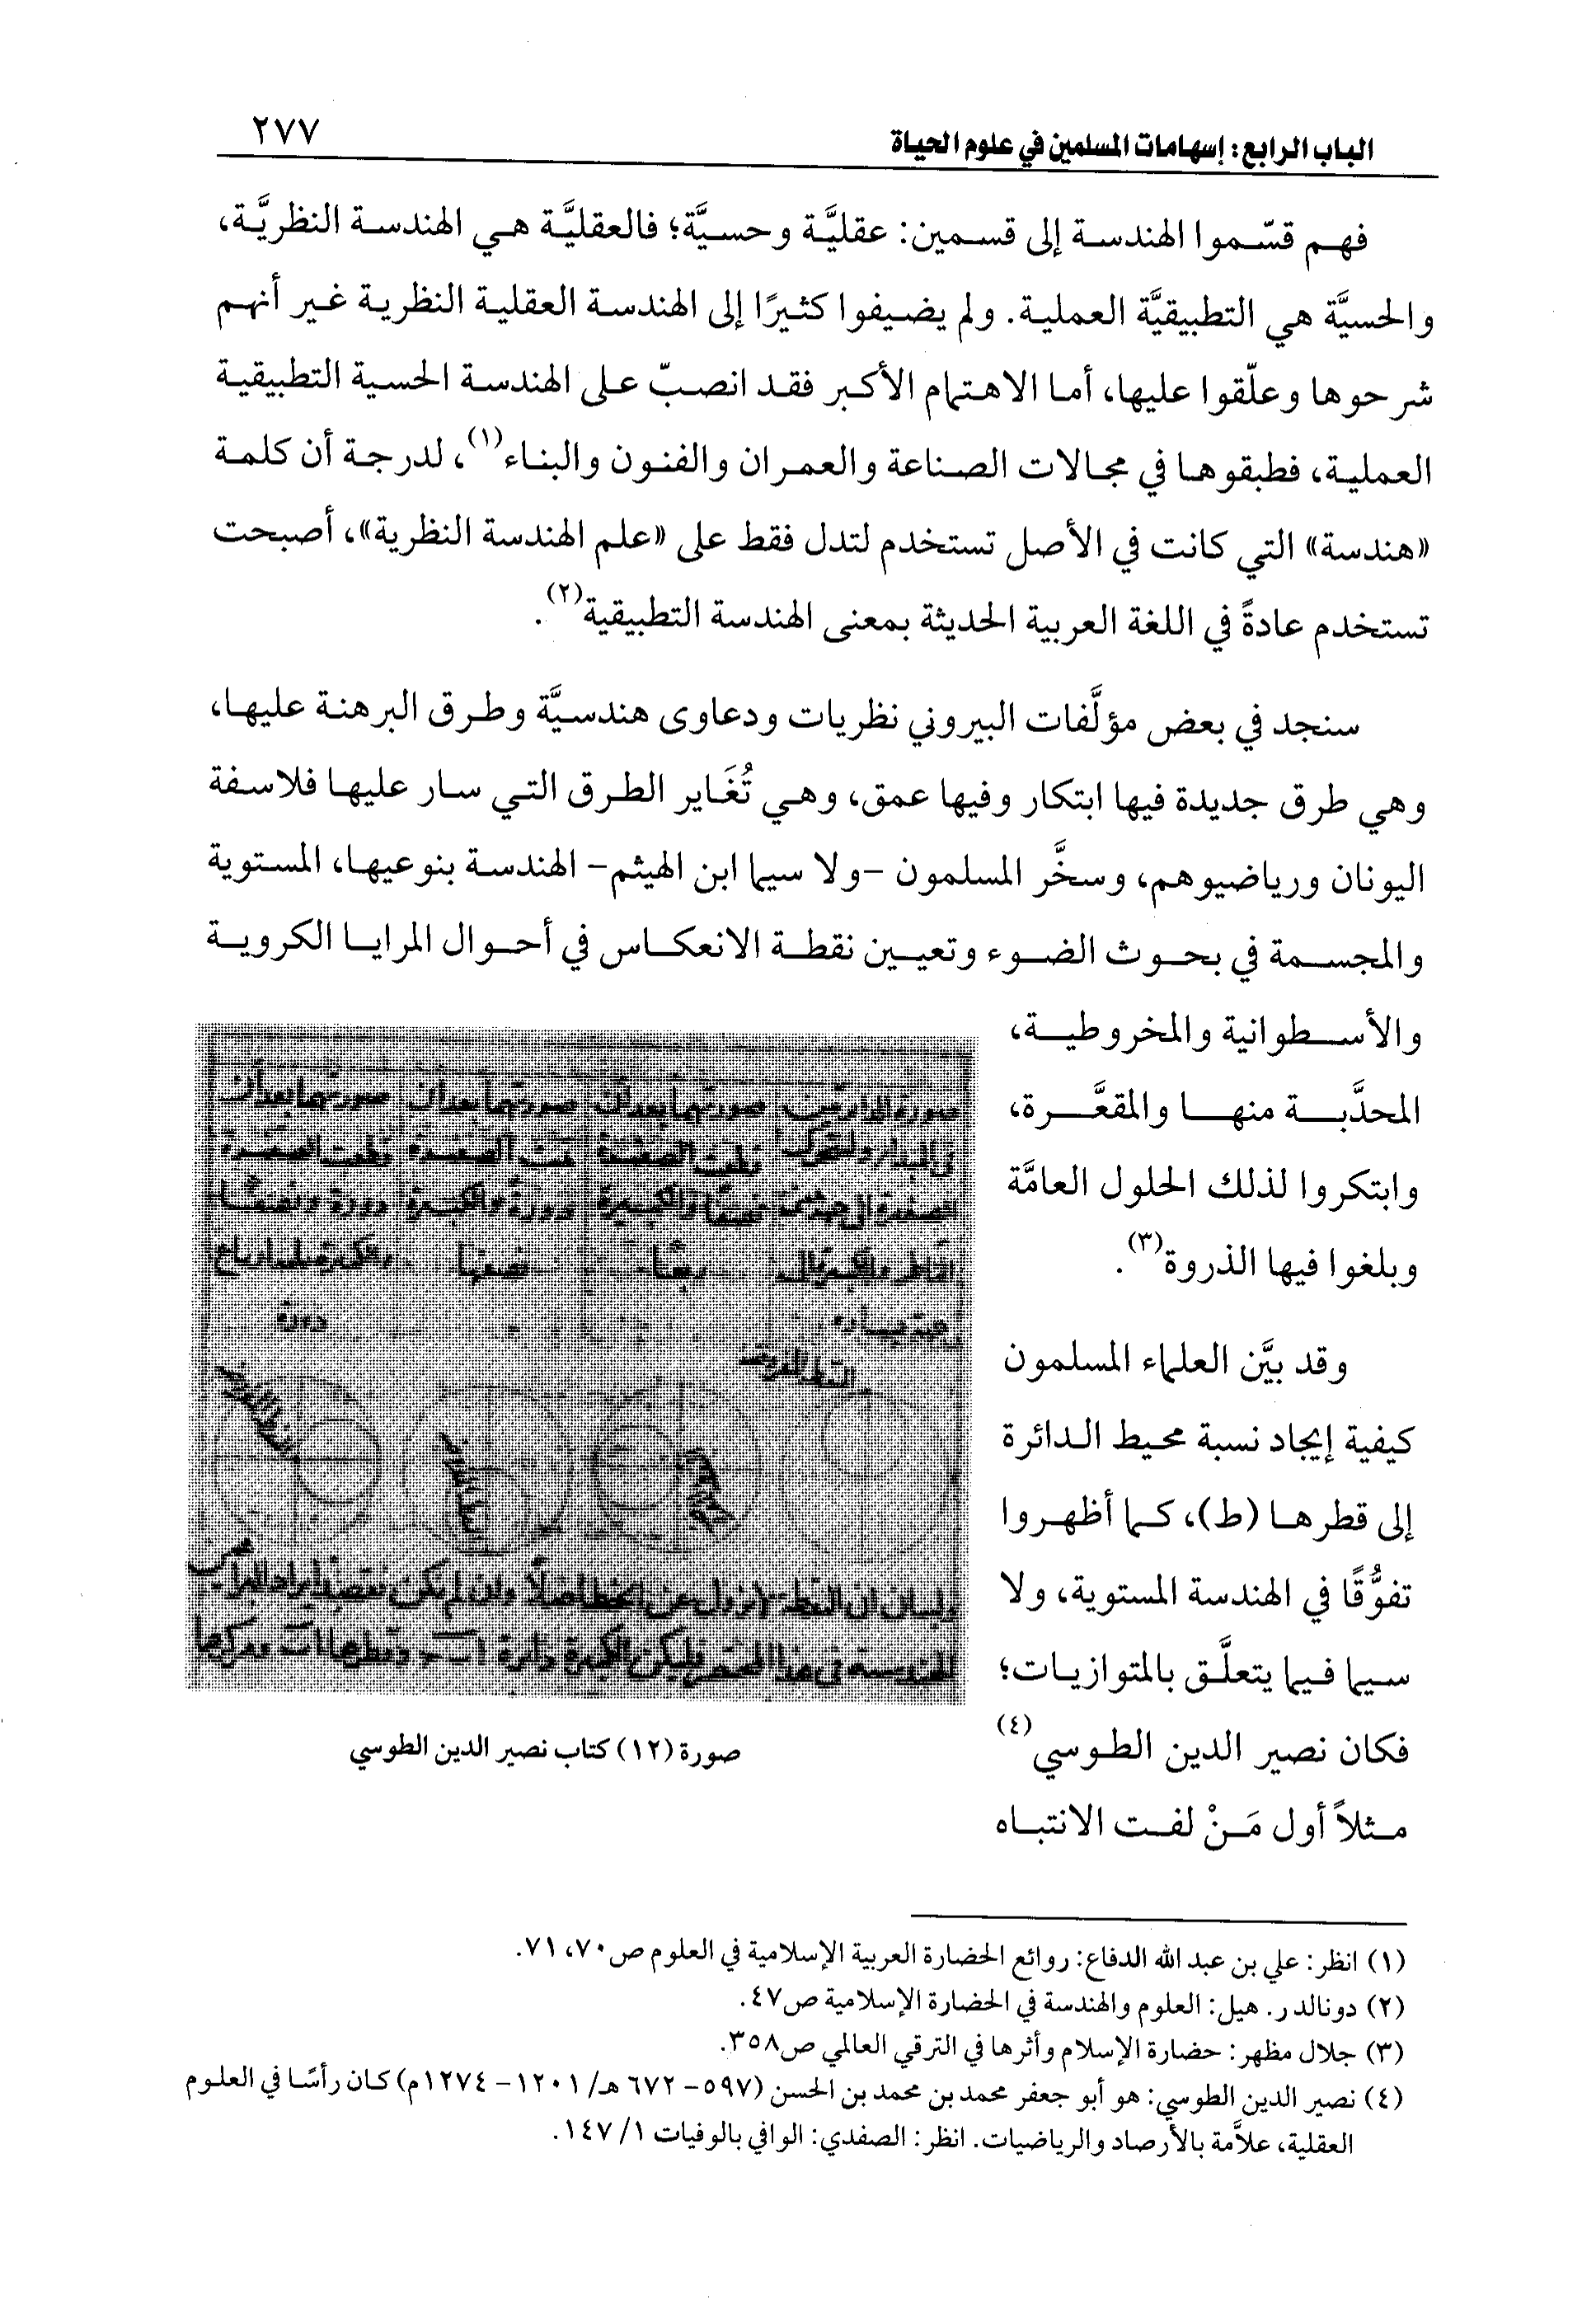 الباب الرابع: إسهامات المسلمين في علوم الحياة ٢٧٧
فهم قسّموا الهندسة إلى قسمين: عقليَّة وحسيَّة؛ فالعقليَّة هي الهندسة النظريَّة،
والحسيَّة هي التطبيقيَّة العملية. ولم يضيفوا كثيرًا إلى الهندسة العقلية النظرية غير أنهم
شرحوها وعلّقوا عليها، أما الاهتمام الأكبر فقد انصبّ على الهندسة الحسية التطبيقية
العملية، فطبقوها في مجالات الصناعة والعمران والفنون والبناء(١)، لدرجة أن كلمة
«هندسة» التي كانت في الأصل تستخدم لتدل فقط على «علم الهندسة النظرية»، أصبحت
تستخدم عادةً في اللغة العربية الحديثة بمعنى الهندسة التطبيقية(٢).
سنجد في بعض مؤلَّفات البيروني نظريات ودعاوى هندسيَّة وطرق البرهنة عليها،
وهي طرق جديدة فيها ابتكار وفيها عمق، وهي تُغَاير الطرق التي سار عليها فلاسفة
اليونان ورياضيوهم، وسخَّر المسلمون -ولا سيما ابن الهيثم- الهندسة بنوعيها، المستوية
والمجسمة في بحوث الضوء وتعيين نقطة الانعكاس في أحوال المرايا الكروية
والأسطوانية والمخروطية،
المحدَّبة منها والمقعَّرة،
وابتكروا لذلك الحلول العامَّة
وبلغوا فيها الذروة(٣).
وقد بيَّن العلماء المسلمون
كيفية إيجاد نسبة محيط الدائرة
إلى قطرها (ط)، كما أظهروا
تفوُّقًا في الهندسة المستوية، ولا
سيما فيما يتعلَّق بالمتوازيات؛
فكان نصير الدين الطوسي(٤)
مثلاً أول مَنْ لفت الانتباه
صورة (١٢) كتاب نصير الدين الطوسي
(١) انظر: علي بن عبد الله الدفاع: روائع الحضارة العربية الإسلامية في العلوم ص٧٠، ٧١.
(٢) دونالد ر. هيل: العلوم والهندسة في الحضارة الإسلامية ص٤٧.
(٣) جلال مظهر: حضارة الإسلام وأثرها في الترقي العالمي ص٣٥٨.
(٤) نصير الدين الطوسي: هو أبو جعفر محمد بن محمد بن الحسن (٥٩٧- ٦٧٢ هـ/ ١٢٠١- ١٢٧٤م) كان رأسًا في العلوم
العقلية، علاَّمة بالأرصاد والرياضيات. انظر: الصفدي: الوافي بالوفيات ١/ ١٤٧.